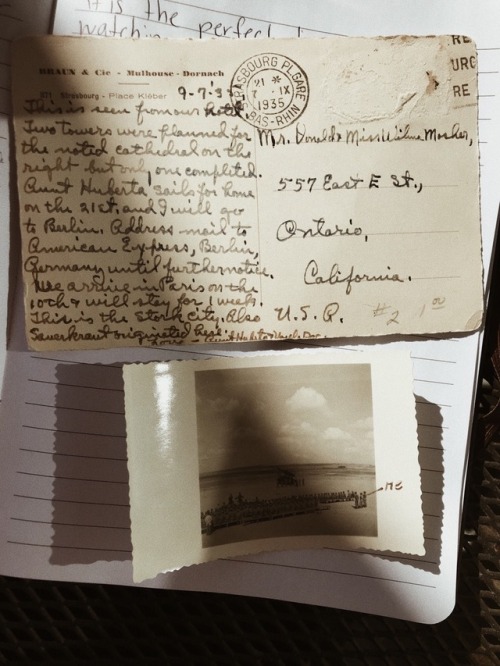 It is the perfect
watching
BRAUN & Cie - Mulhouse-Dornach
Strasbourg - Place Kléber
9-7-35
This is seen from our hotel
Two towers were planned for
the noted cathedral on the
right but only one completed.
Aunt Huberta sails for home
on the 21st, and I will go
to Berlin. Address mail to
American Express, Berlin,
Germany until further notice.
We arrive in Paris on the
10th & will stay for 1 week.
This is the stork city. Also
Sauerkraut originated here.
Love - Aunt Huberta
STRASBOURG PL. GARE
21
7 IX
1935
BAS-RHIN
Mr. Donald & Miss Wilma Mosher,
557 East E St.,
Ontario,
California.
U.S.A.
#2 1 00
RE
URG
RE
ME